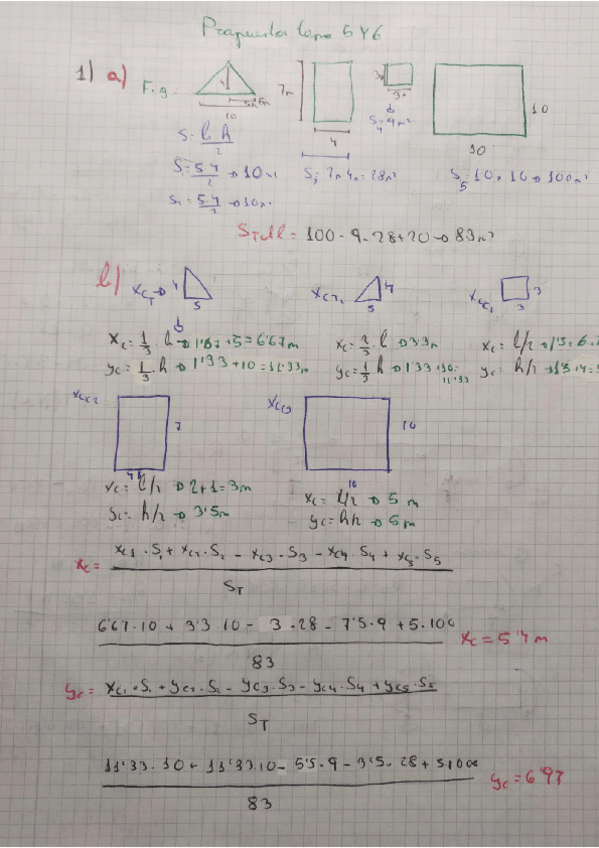 Propuestos tema 5 y 6
1) a) Fig. 4 10 5m 7m 4 3 3 10 10
S = b·h/2 S4 = 9m²
S = 5·4/2 → 10m² S3 = 7·4 = 28m² S5 = 10 · 10 → 100m²
S2 = 5·4/2 → 10m²
STotal = 100 - 9 - 28 + 20 → 83m²
b) XC1 → 4 5 XC2 4 5 3 3
Xc = 1/3 · b → 1'67 + 5 = 6'67m Xc = 2/3 · b → 3'3m Xc = b/2 → 1'5 + 6
yc = 1/3 · h → 1'33 + 10 = 11'33m yc = 1/3 h → 1'33 + 10 = 11'33 yc = h/2 → 1'5 + 4 =
7 10
4 10
Xc = b/2 → 2 + 1 = 3m Xc = b/2 → 5 m
yc = h/2 → 3'5m yc = h/2 → 5m
Xc = Xc1 · S1 + Xc2 · S2 - Xc3 · S3 - Xc4 · S4 + Xc5 · S5
ST
6'67 · 10 + 3'3 · 10 - 3 · 28 - 7'5 · 9 + 5 · 100 Xc = 5'4 m
83
yc = yc1 · S1 + yc2 · S2 - yc3 · S3 - yc4 · S4 + yc5 · S5
ST
11'33 · 10 + 11'33 · 10 - 5'5 · 9 - 3'5 · 28 + 5 · 100 yc = 6'97
83